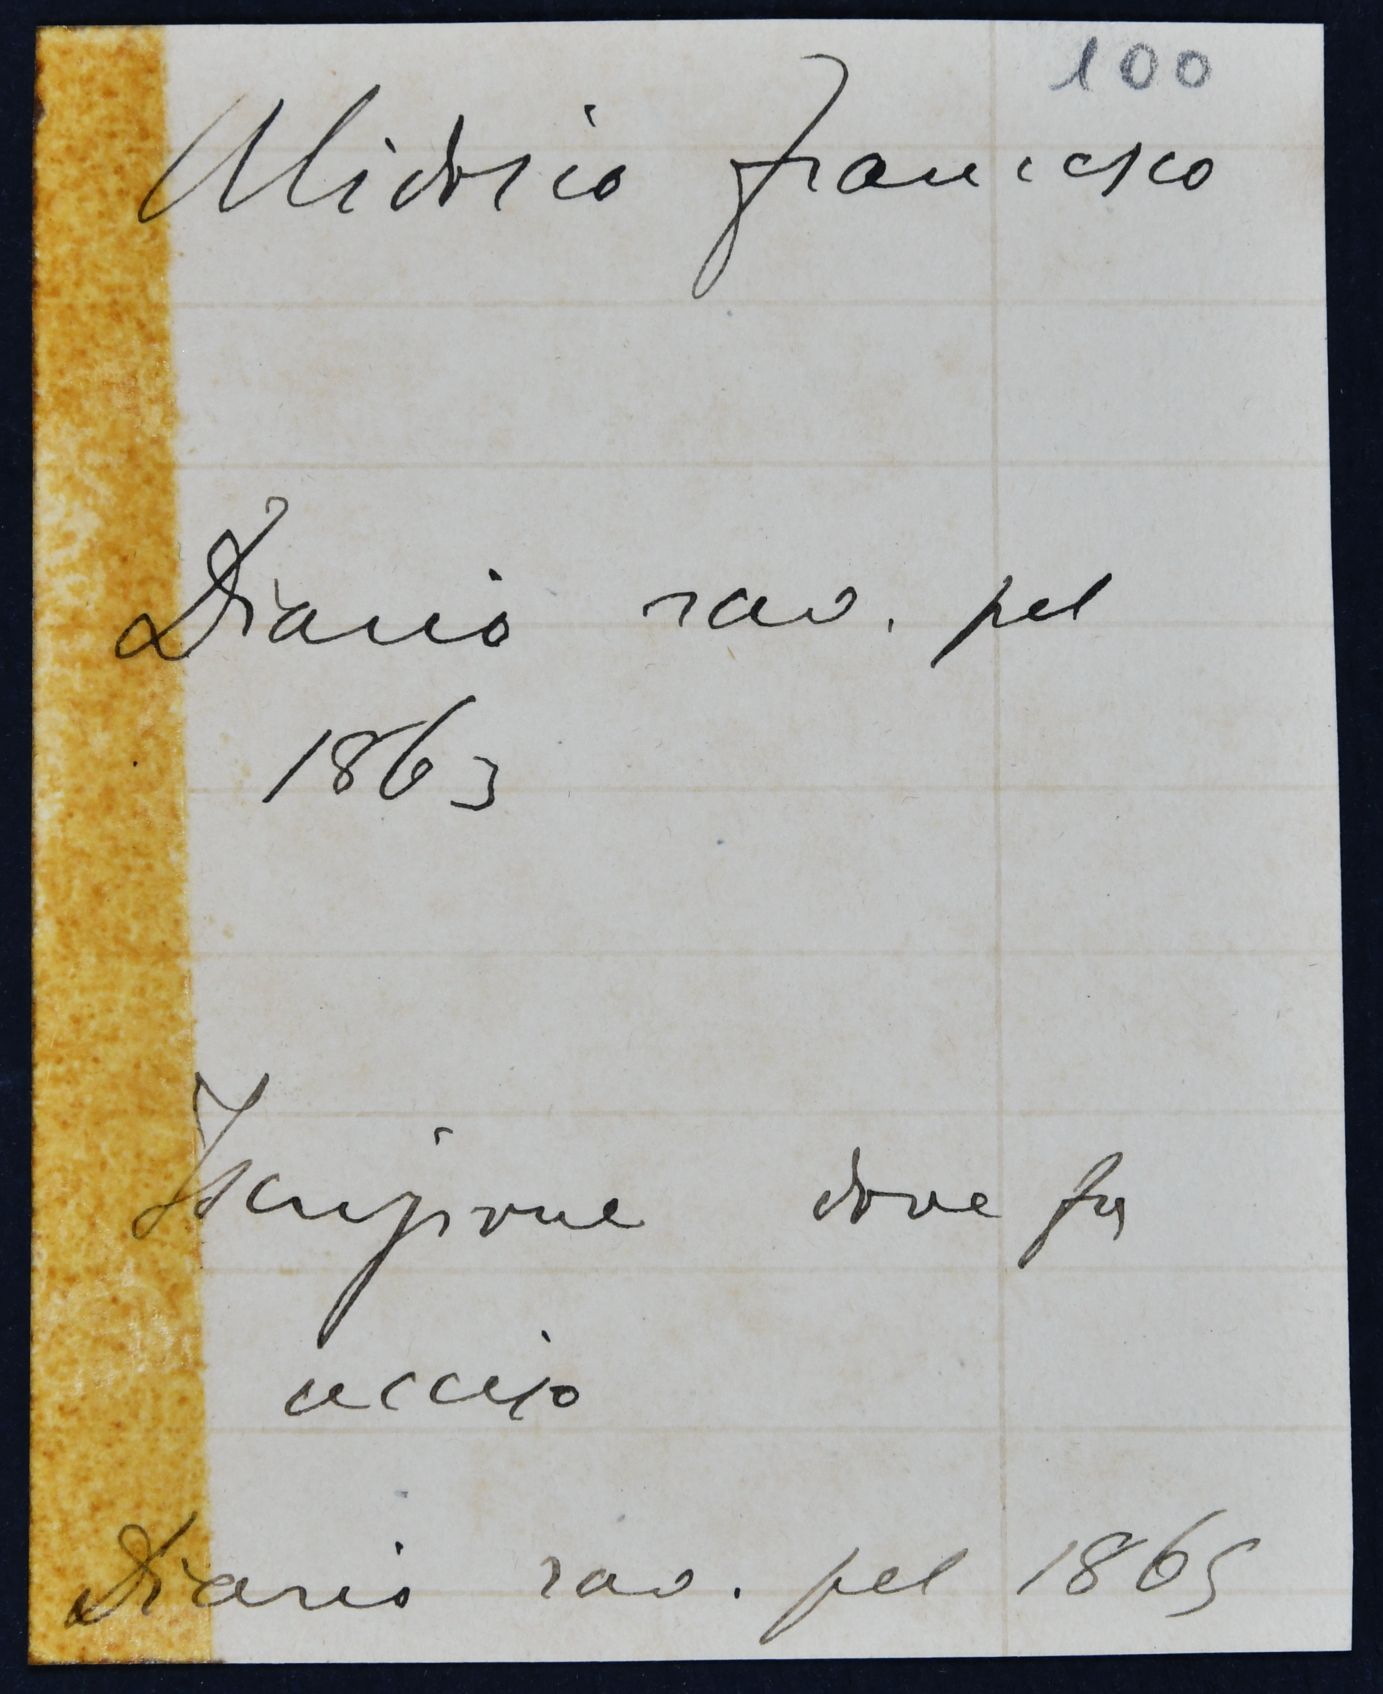 100
Alidosio Francesco
Diario rav. pel
1863
Iscrizione dove fu
ucciso
Diario rav. pel 1865